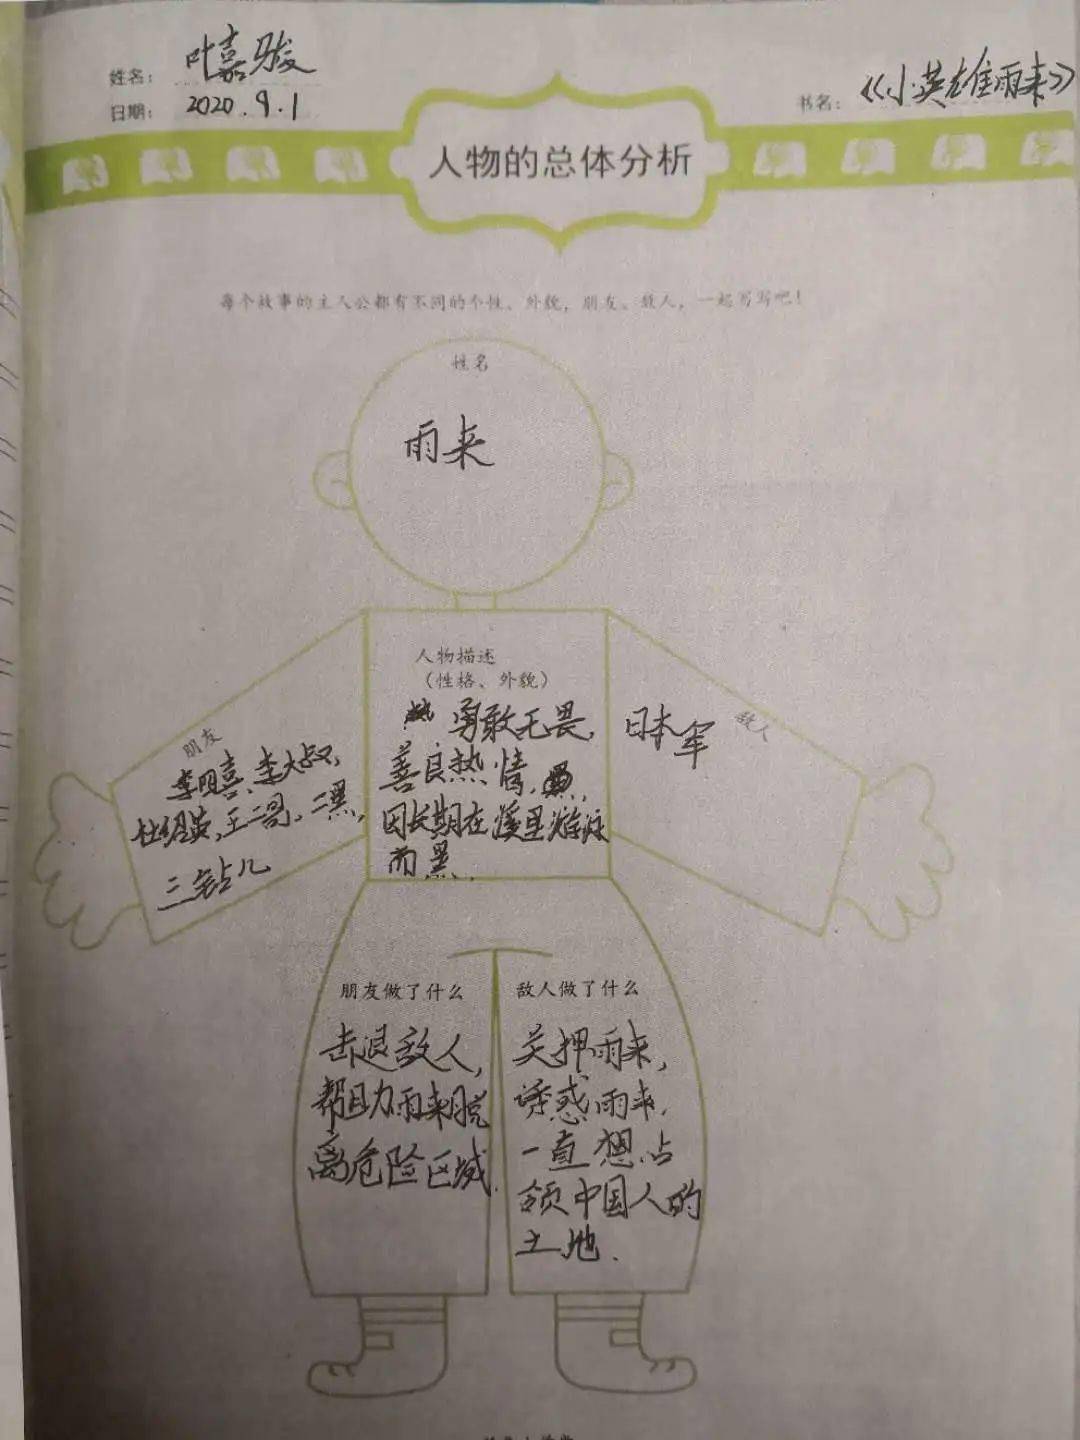 姓名： 叶嘉骏
日期： 2020.9.1
书名： 《小英雄雨来》
人物的总体分析
每个故事的主人公都有不同的个性、外貌，朋友、敌人，一起写写吧！
姓名
雨来
朋友
李明喜、李大叔，
杜绍英，王二哥，二黑，
三钻儿
人物描述
（性格、外貌）
勇敢无畏，
善良热情，
因长期在溪里游泳
而黑．
敌人
日本军
朋友做了什么
击退敌人，
帮助雨来脱
离危险区域．
敌人做了什么
关押雨来，
诱惑雨来．
一直想占
领中国人的
土地．